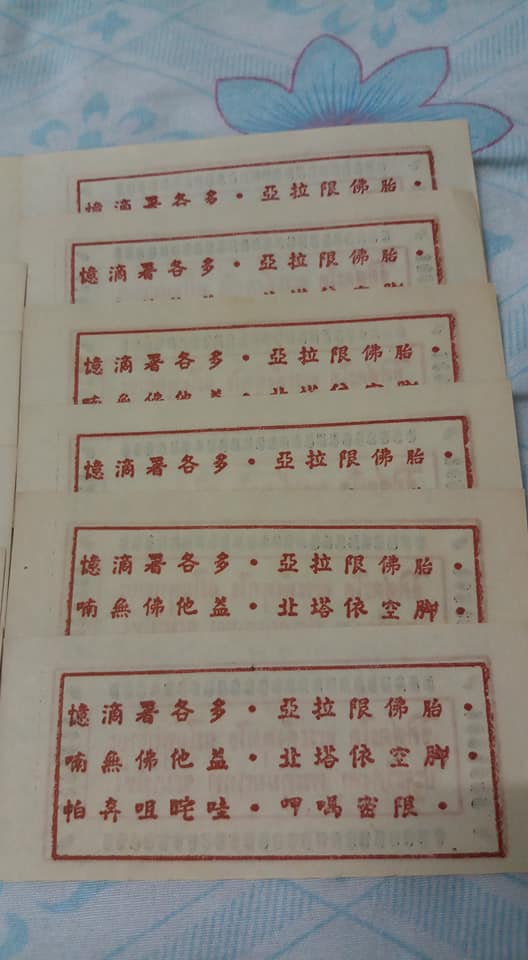 憶滴署各多・亞拉限佛胎・
憶滴署各多・亞拉限佛胎・
憶滴署各多・亞拉限佛胎・
喃無佛他益・北塔依空脚
憶滴署各多・亞拉限佛胎・
憶滴署各多・亞拉限佛胎・
喃無佛他益・北塔依空脚・
憶滴署各多・亞拉限佛胎・
喃無佛他益・北塔依空脚・
帕奔咀咤哇・呷嗎密限・